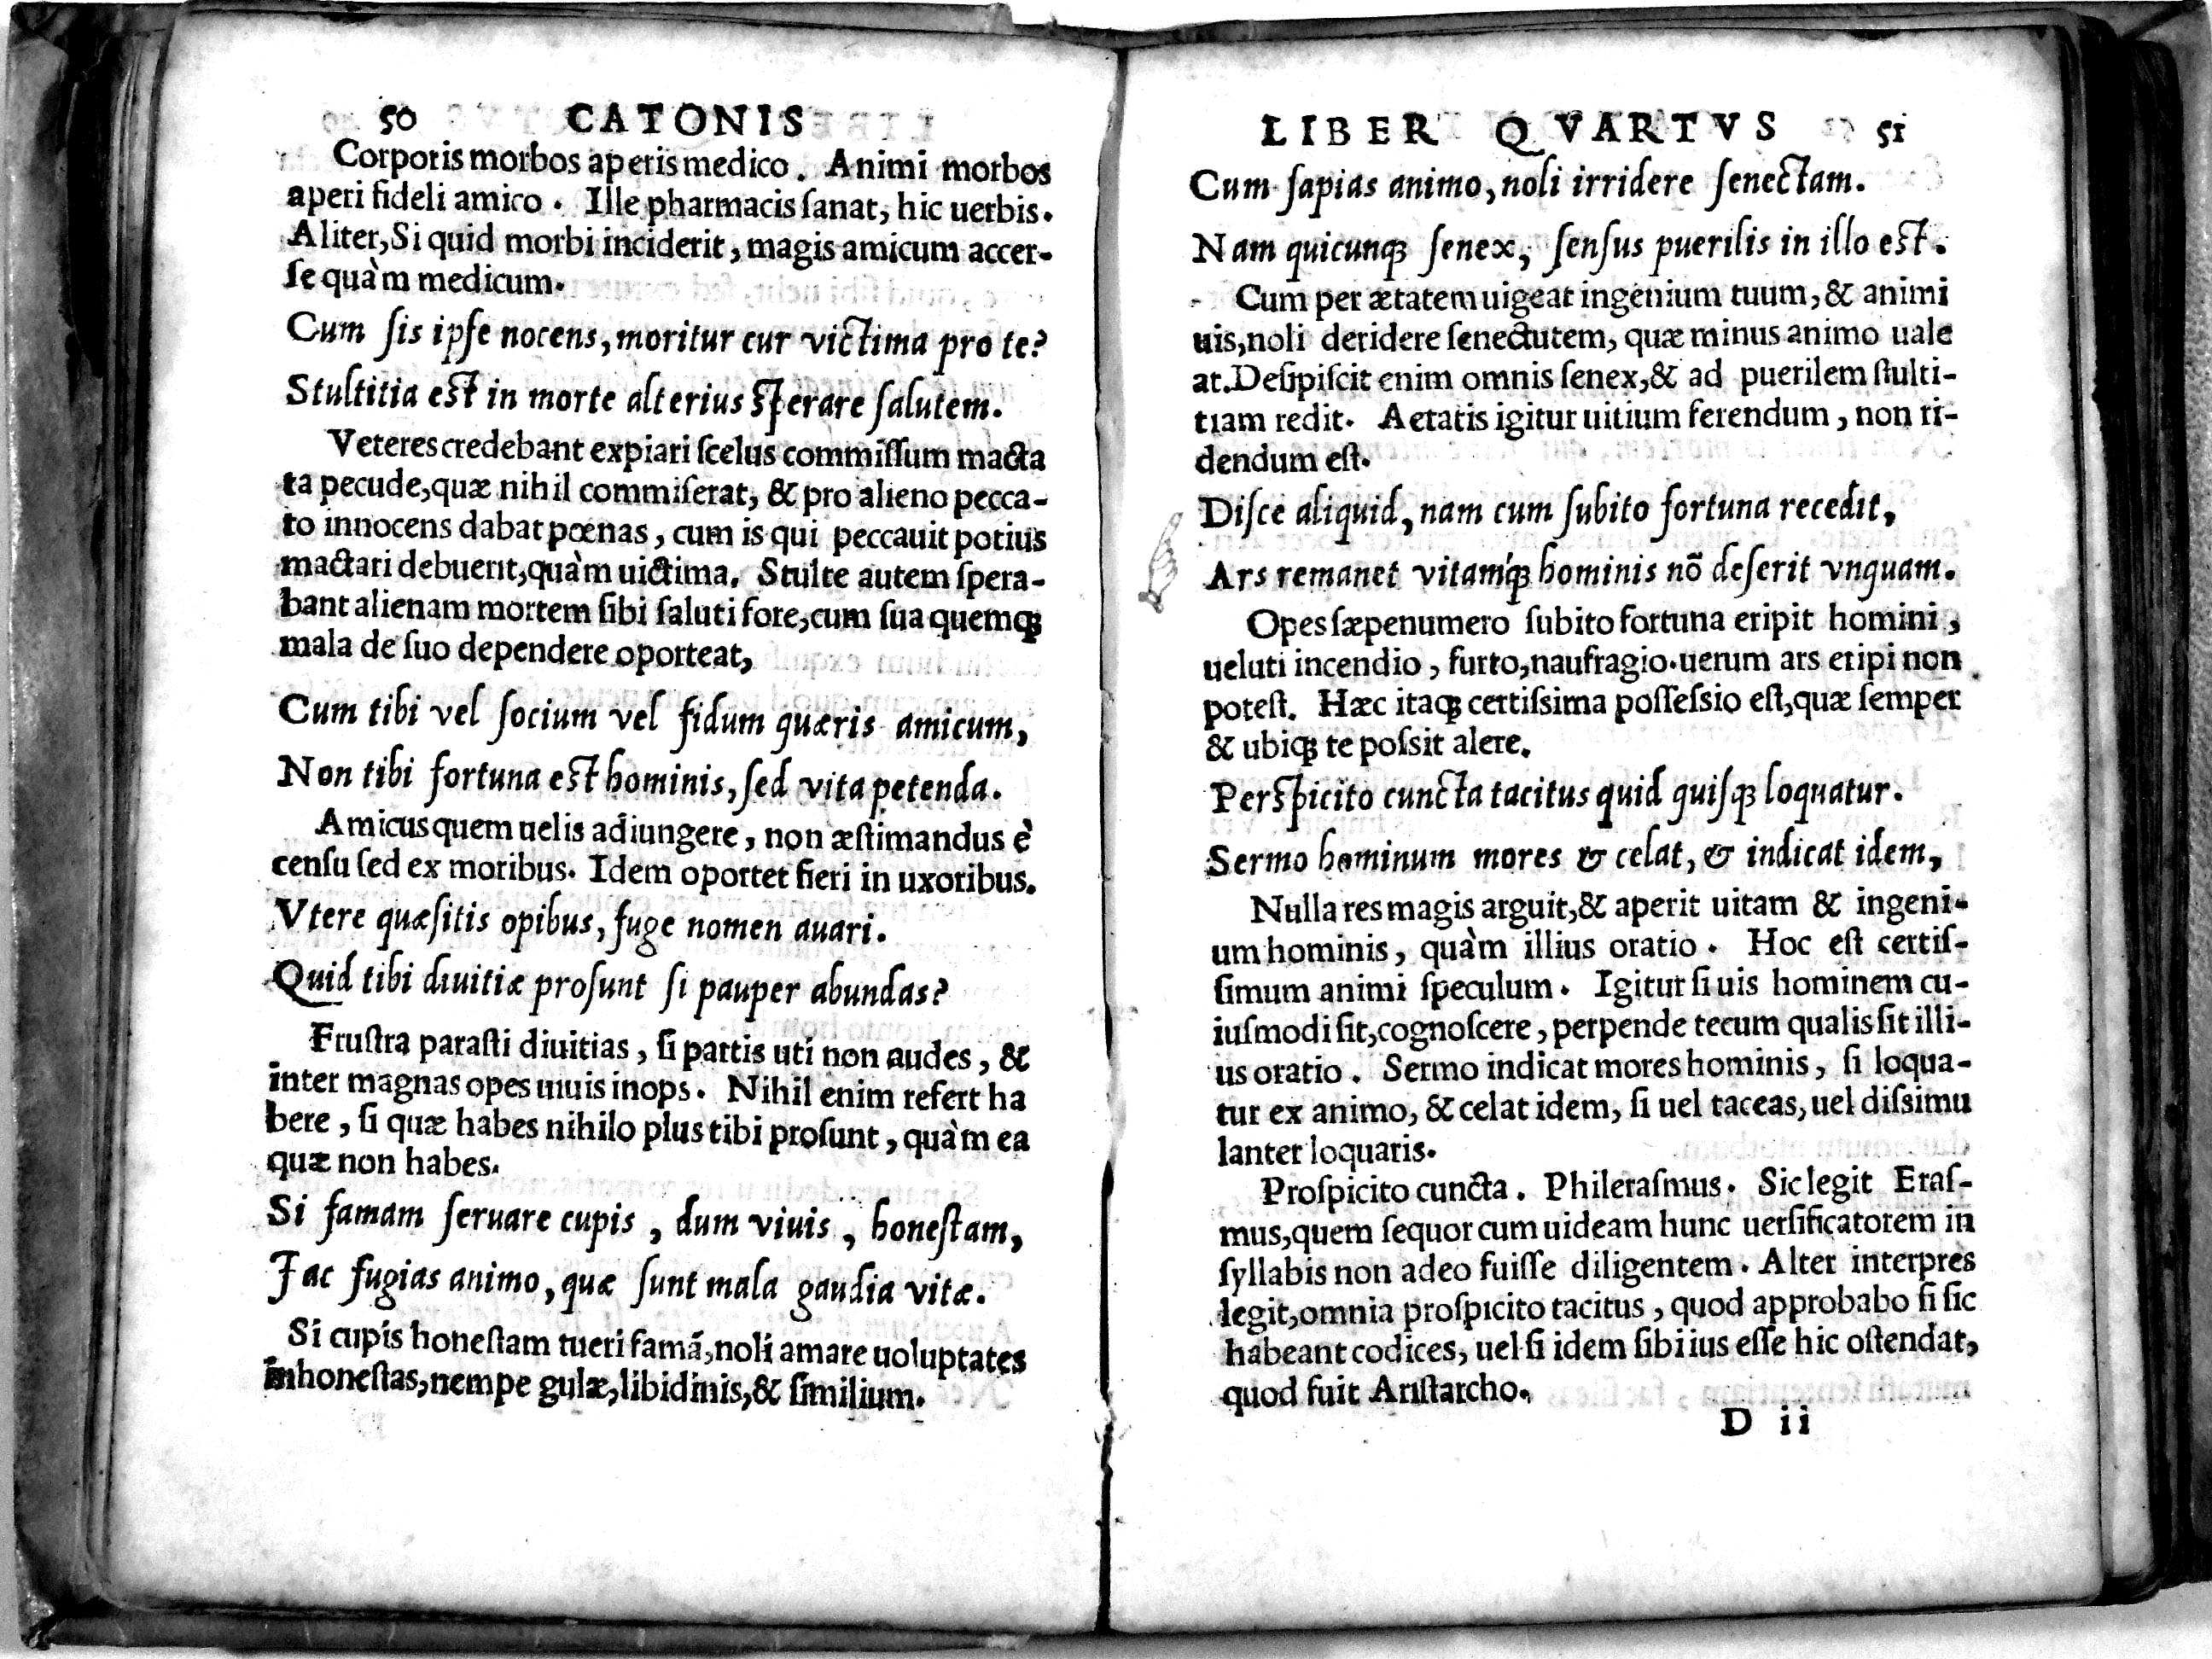 50 CATONIS
Corporis morbos aperis medico. Animi morbos
aperi fideli amico. Ille pharmacis ſanat, hic uerbis.
Aliter, Si quid morbi inciderit, magis amicum accer-
ſe quàm medicum.
Cum ſis ipſe nocens, moritur cur victima pro te?
Stultitia eſt in morte alterius ſperare ſalutem.
Veteres credebant expiari ſcelus commiſſum macta
ta pecude, quæ nihil commiſerat, & pro alieno pecca-
to innocens dabat pœnas, cum is qui peccauit potius
mactari debuerit, quàm uictima. Stulte autem ſpera-
bant alienam mortem ſibi ſaluti fore, cum ſua quemq;
mala de ſuo dependere oporteat,
Cum tibi vel ſocium vel fidum quæris amicum,
Non tibi fortuna eſt hominis, ſed vita petenda.
Amicus quem uelis adiungere, non æſtimandus è
cenſu ſed ex moribus. Idem oportet fieri in uxoribus.
Vtere quæſitis opibus, fuge nomen auari.
Quid tibi diuitiæ proſunt ſi pauper abundas?
Fruſtra paraſti diuitias, ſi partis uti non audes, &
inter magnas opes uiuis inops. Nihil enim refert ha
bere, ſi quæ habes nihilo plus tibi proſunt, quàm ea
quæ non habes.
Si famam ſeruare cupis, dum viuis, honeſtam,
Fac fugias animo, quæ ſunt mala gaudia vitæ.
Si cupis honeſtam tueri famã, noli amare uoluptates
inhoneſtas, nempe gulæ, libidinis, & ſimilium.
LIBER QVARTVS 51
Cum ſapias animo, noli irridere ſenectam.
Nam quicunq; ſenex, ſenſus puerilis in illo eſt.
Cum per ætatem uigeat ingenium tuum, & animi
uis, noli deridere ſenectutem, quæ minus animo uale
at. Deſipiſcit enim omnis ſenex, & ad puerilem ſtulti-
tiam redit. Aetatis igitur uitium ferendum, non ri-
dendum eſt.
Diſce aliquid, nam cum ſubito fortuna recedit,
Ars remanet vitamq́; hominis nõ deſerit vnquam.
Opes ſæpenumero ſubito fortuna eripit homini,
ueluti incendio, furto, naufragio. uerum ars eripi non
poteſt. Hæc itaq; certiſsima poſſeſsio eſt, quæ ſemper
& ubiq; te poſsit alere.
Perſpicito cuncta tacitus quid quiſq; loquatur.
Sermo hominum mores & celat, & indicat idem,
Nulla res magis arguit, & aperit uitam & ingeni-
um hominis, quàm illius oratio. Hoc eſt certiſ-
ſimum animi ſpeculum. Igitur ſi uis hominem cu-
iuſmodi ſit, cognoſcere, perpende tecum qualis ſit illi-
us oratio. Sermo indicat mores hominis, ſi loqua-
tur ex animo, & celat idem, ſi uel taceas, uel diſsimu
lanter loquaris.
Proſpicito cuncta. Phileraſmus. Sic legit Eraſ-
mus, quem ſequor cum uideam hunc uerſificatorem in
ſyllabis non adeo fuiſſe diligentem. Alter interpres
legit, omnia proſpicito tacitus, quod approbabo ſi ſic
habeant codices, uel ſi idem ſibi ius eſſe hic oſtendat,
quod fuit Ariſtarcho.
D ii